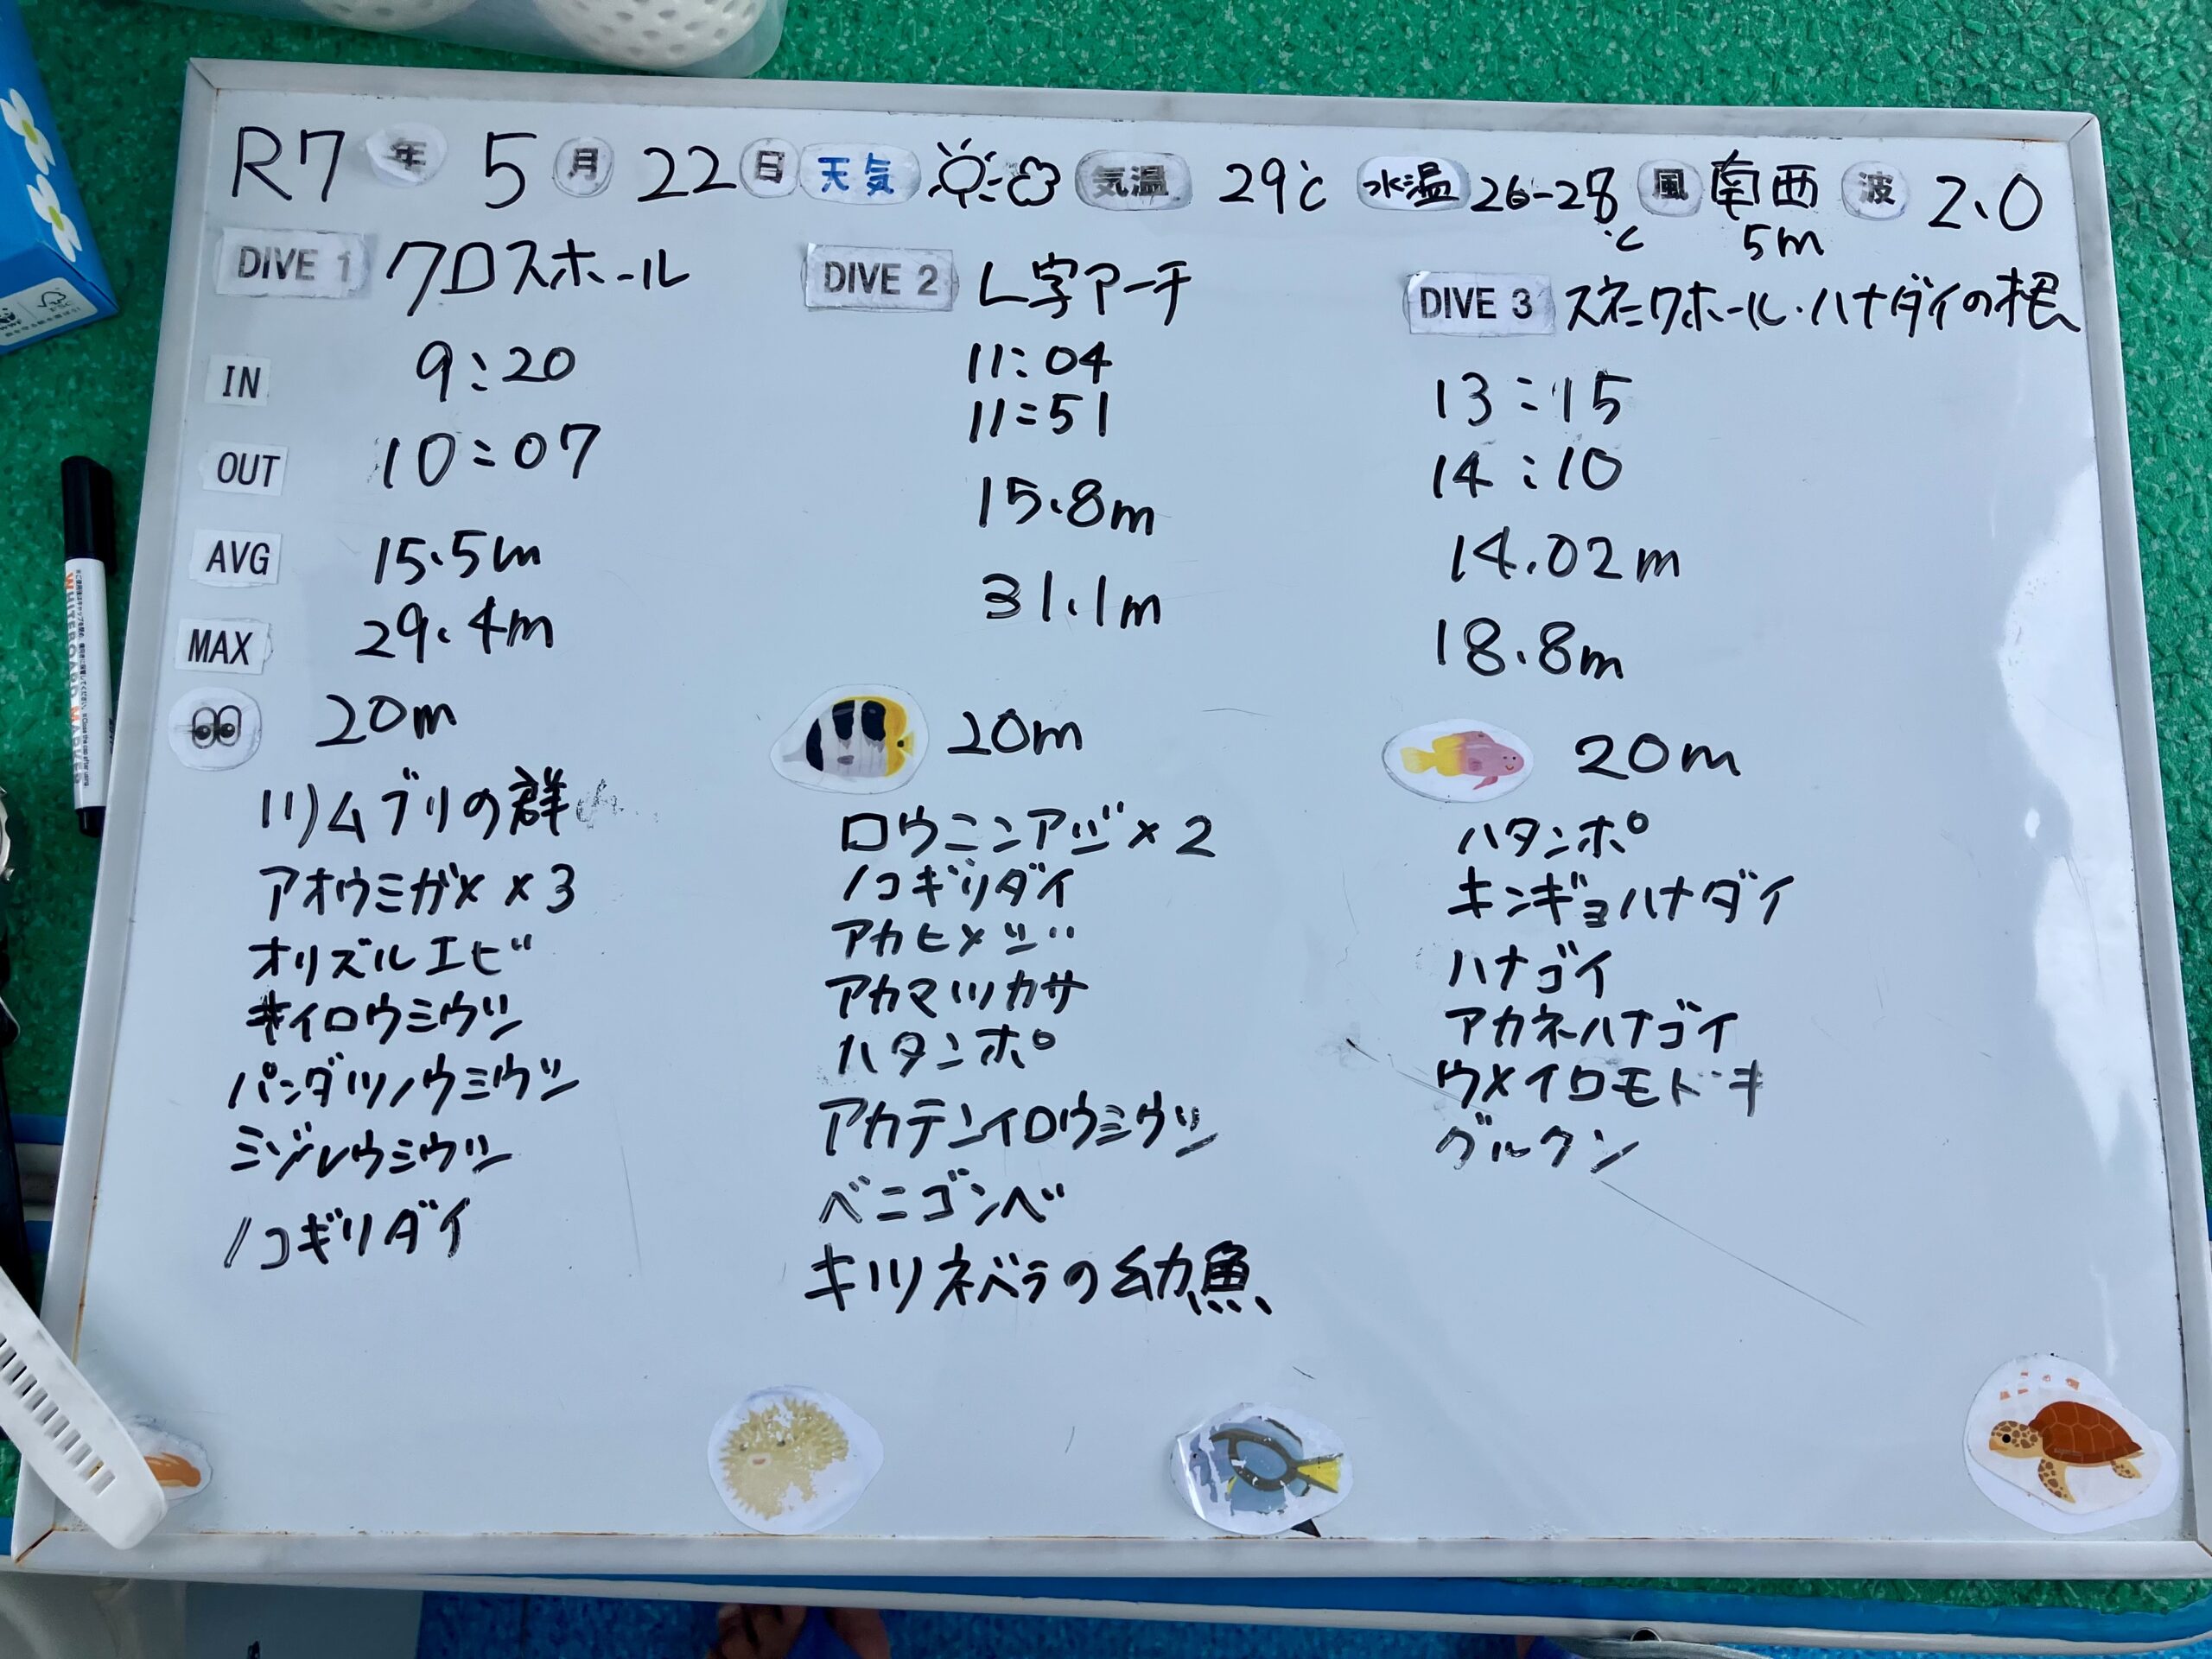 R7 年 5 月 22 日 天気 気温 29℃ 水温 26-28℃ 風 南西 5m 波 2.0
DIVE 1 クロスホール
IN 9:20
OUT 10:07
AVG 15.5m
MAX 29.4m
20m
ツムブリの群
アオウミガメ×3
オリズルエビ
キイロウミウシ
パンダツノウミウシ
ミゾレウミウシ
ノコギリダイ
DIVE 2 L字アーチ
11:04
11:51
15.8m
31.1m
20m
ロウニンアジ×2
ノコギリダイ
アカヒメジ
アカマツカサ
ハタンポ
アカテンイロウミウシ
ベニゴンベ
キツネベラの幼魚
DIVE 3 スネークホール・ハナダイの根
13:15
14:10
14.02m
18.8m
20m
ハタンポ
キンギョハナダイ
ハナゴイ
アカネハナゴイ
ウメイロモドキ
グルクン
WHITEBOARD MARKER